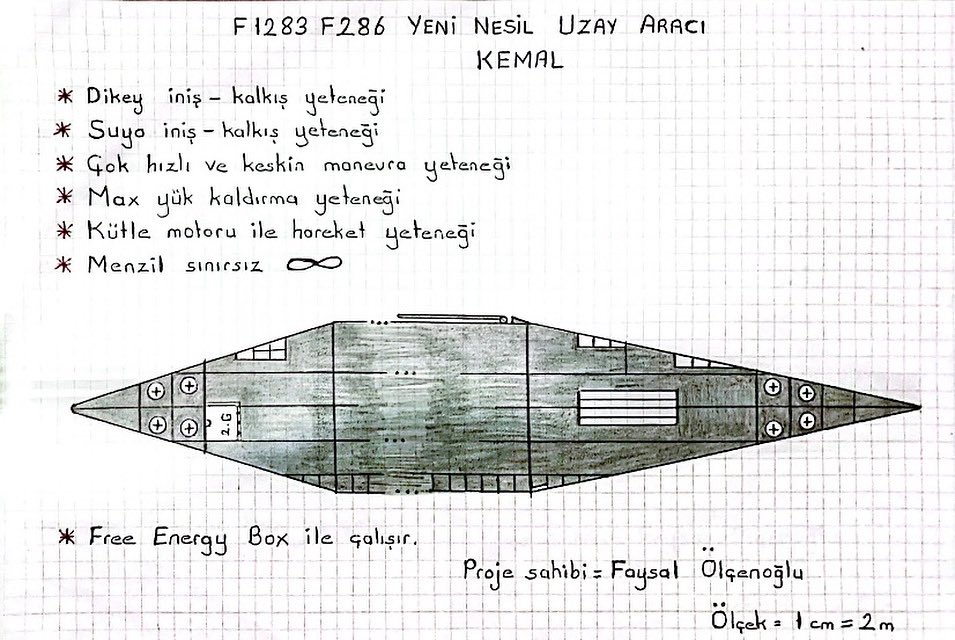 F1283 F286 YENİ NESİL UZAY ARACI
KEMAL
* Dikey iniş - kalkış yeteneği
* Suya iniş - kalkış yeteneği
* Çok hızlı ve keskin manevra yeteneği
* Max yük kaldırma yeteneği
* Kütle motoru ile hareket yeteneği
* Menzil sınırsız ∞
2.G
* Free Energy Box ile çalışır.
Proje sahibi = Faysal Ölçenoğlu
Ölçek = 1 cm = 2 m